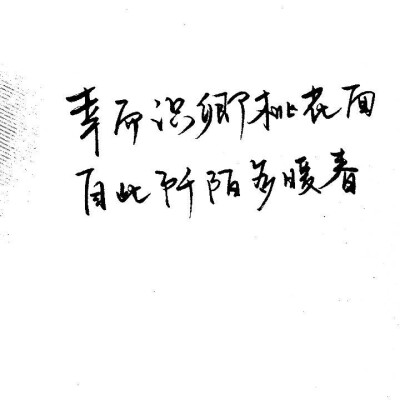 幸而识卿桃花面
自此阡陌多暖春